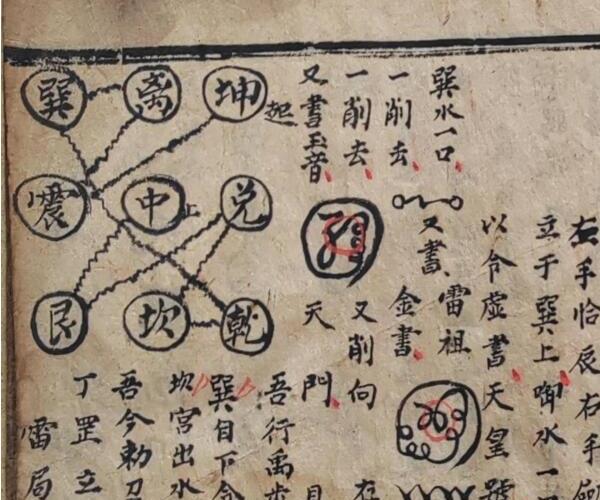 左手恰辰右手劍
立于巽上啣水一
以令虛書天皇號
巽水一口
又書雷祖
一削去
金書
一削去
又削向
又書玉音
天門
起
巽離坤
震中兌
上
艮坎乾
吾行禹步
巽目下令
坎宮出水
吾今勅
丁罡立
雷局